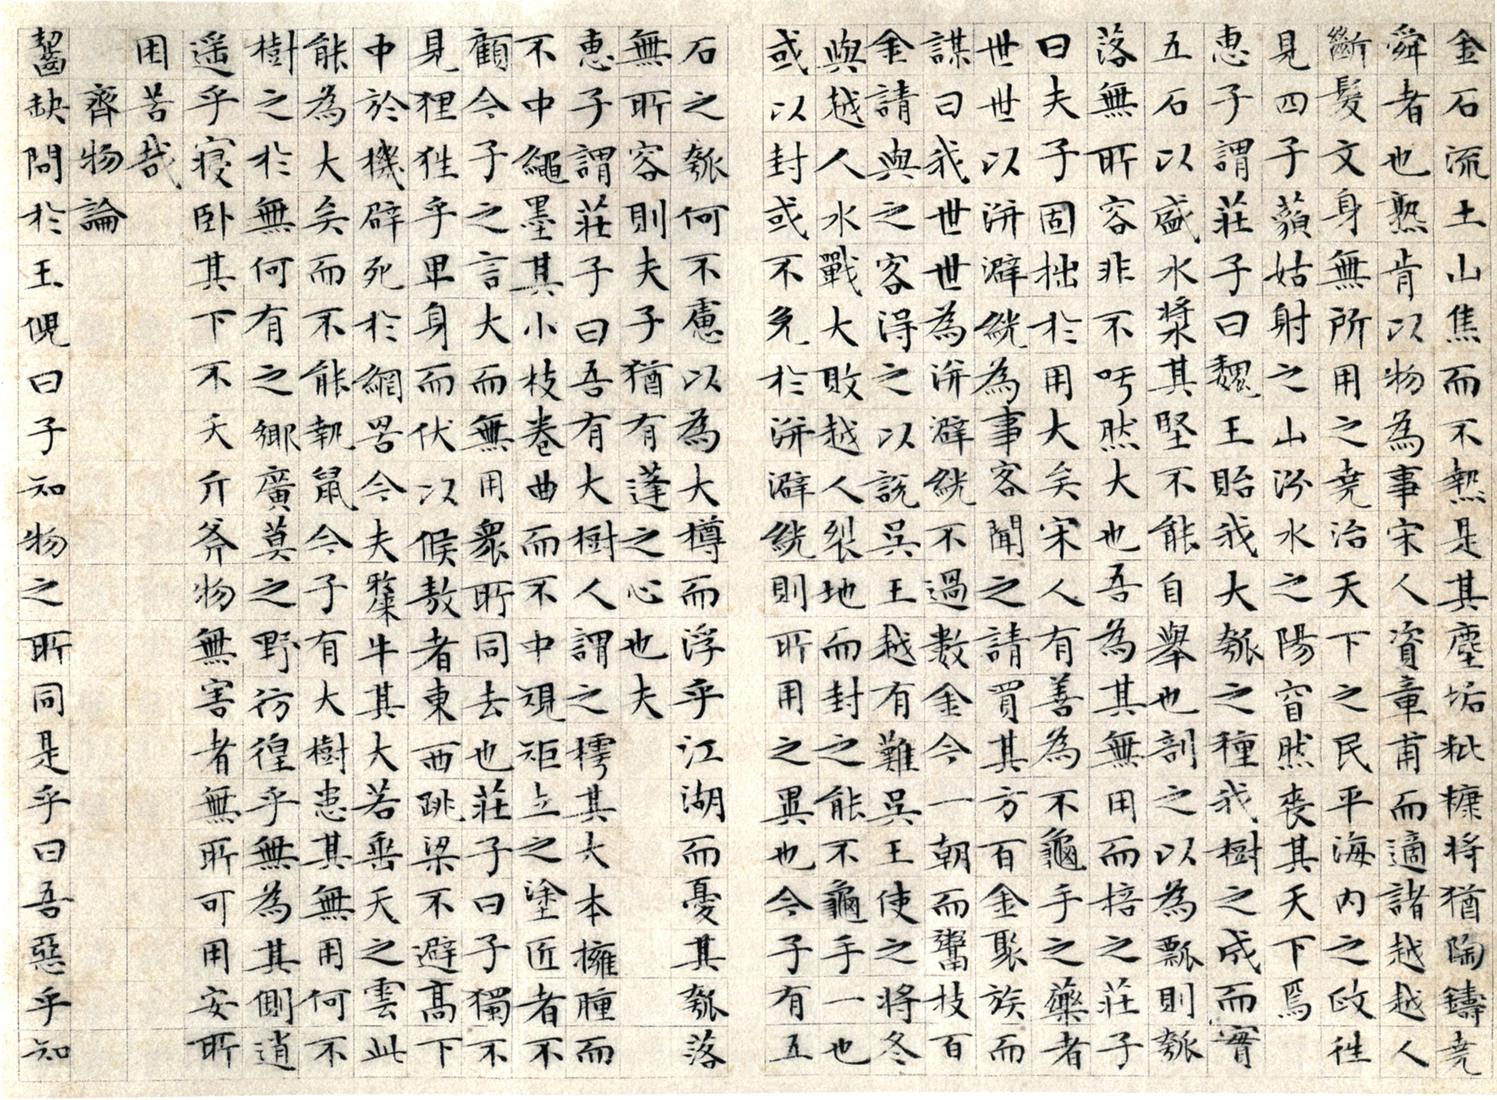 金石流土山焦而不熱是其塵垢粃糠將猶陶鑄堯
舜者也熟肯以物為事宋人資章甫而適諸越越人
斷髮文身無所用之堯治天下之民平海內之政往
見四子藐姑射之山汾水之陽窅然喪其天下焉
惠子謂莊子曰魏王貽我大瓠之種我樹之成而實
五石以盛水漿其堅不能自舉也剖之以為瓢則瓠
落無所容非不呺然大也吾為其無用而掊之莊子
曰夫子固拙於用大矣宋人有善為不龜手之藥者
世世以洴澼絖為事客聞之請買其方百金聚族而
謀曰我世世為洴澼絖不過數金今一朝而鬻技百
金請與之客得之以說吳王越有難吳王使之將冬
與越人水戰大敗越人裂地而封之能不龜手一也
或以封或不免於洴澼絖則所用之異也今子有五
石之瓠何不慮以為大樽而浮乎江湖而憂其瓠落
無所容則夫子猶有蓬之心也夫
惠子謂莊子曰吾有大樹人謂之樗其大本擁腫而
不中繩墨其小枝卷曲而不中規矩立之塗匠者不
顧今子之言大而無用眾所同去也莊子曰子獨不
見狸狌乎卑身而伏以候敖者東西跳梁不避高下
中於機辟死於網罟今夫斄牛其大若垂天之雲此
能為大矣而不能執鼠今子有大樹患其無用何不
樹之於無何有之鄉廣莫之野彷徨乎無為其側逍
遥乎寢卧其下不夭斤斧物無害者無所可用安所
困苦哉
齊物論
齧缺問於王倪曰子知物之所同是乎曰吾惡乎知